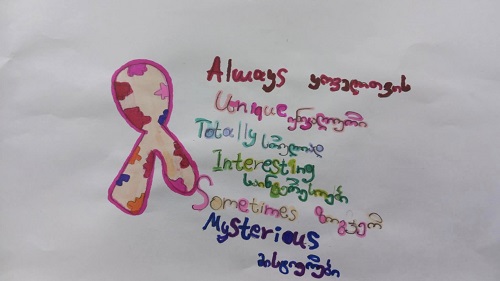 Always ყოველთვის
Unique უნიკალური
Totally სრულიად
Interesting
საინტერესოები
Sometimes ზოგჯერ
Mysterious
მისტიურები